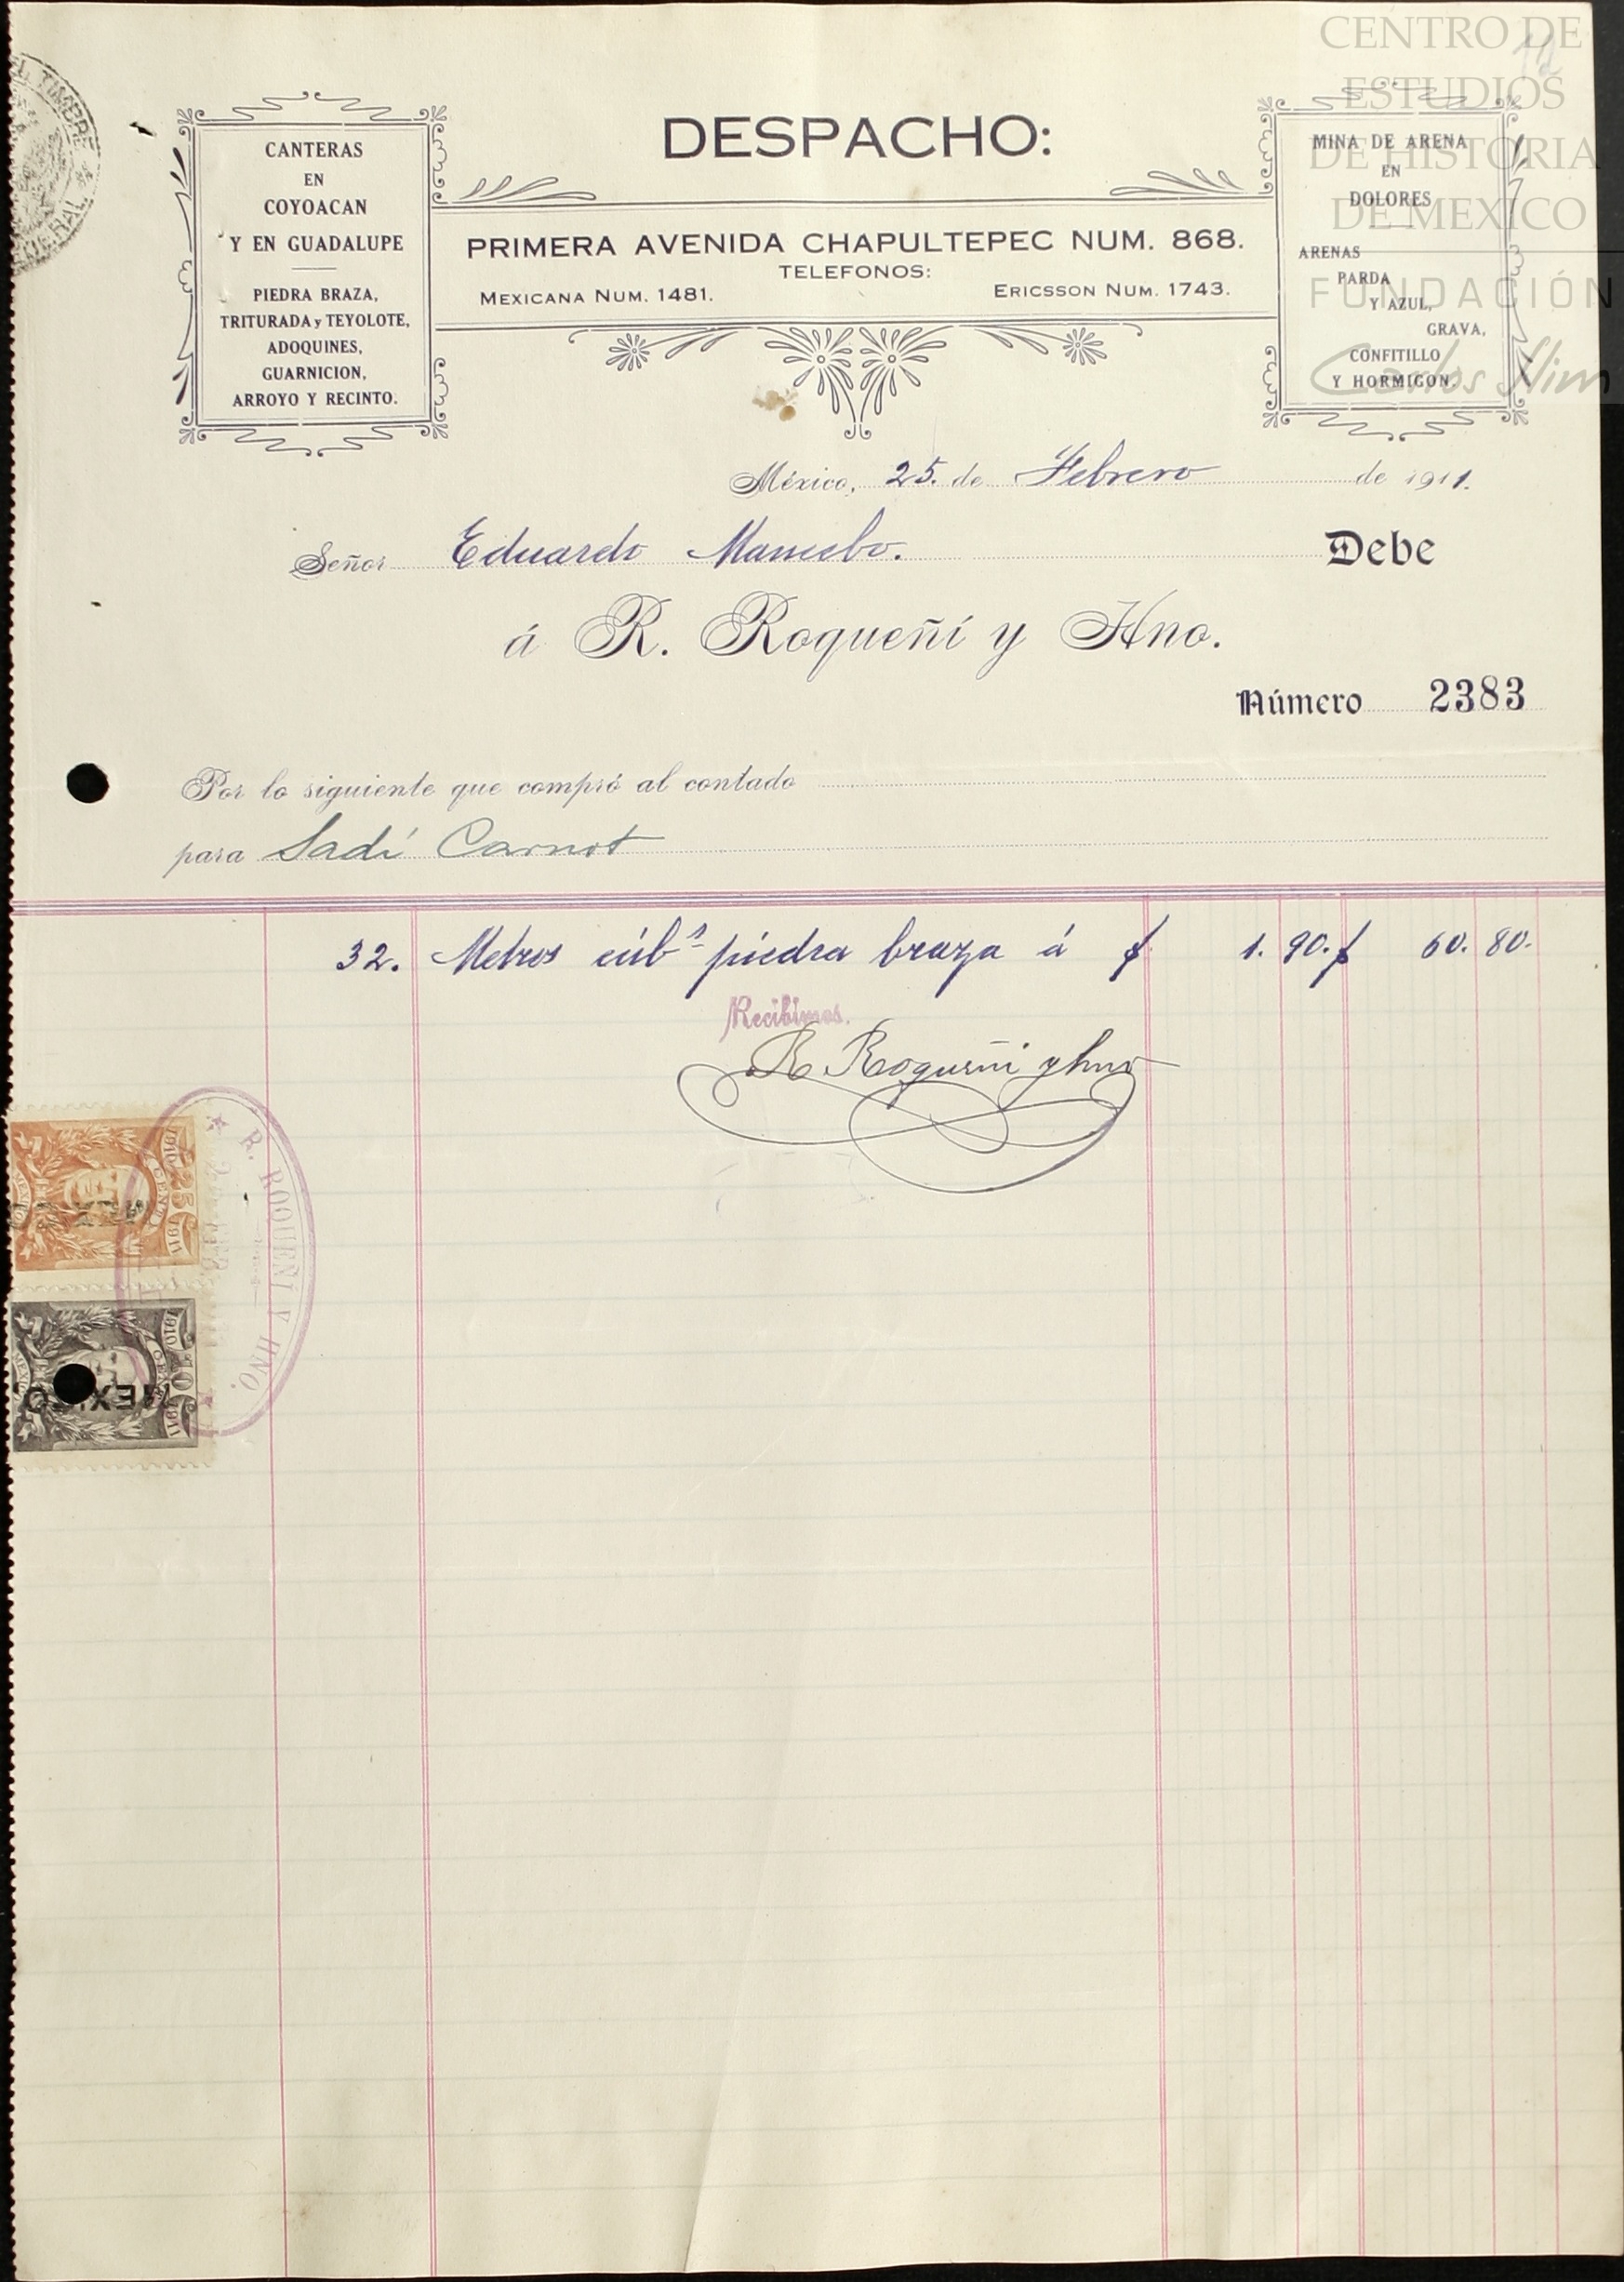 CENTRO DE
ESTUDIOS
DE HISTORIA
DE MEXICO
FUNDACIÓN
Carlos Slim
CANTERAS
EN
COYOACAN
Y EN GUADALUPE
PIEDRA BRAZA,
TRITURADA y TEYOLOTE,
ADOQUINES,
GUARNICION,
ARROYO Y RECINTO.
DESPACHO:
PRIMERA AVENIDA CHAPULTEPEC NUM. 868.
TELEFONOS:
MEXICANA NUM. 1481. ERICSSON NUM. 1743.
MINA DE ARENA
EN
DOLORES
ARENAS
PARDA
Y AZUL,
GRAVA,
CONFITILLO
Y HORMIGON.
México, 25. de Febrero de 1911.
Señor Eduardo Mancebo. Debe
á R. Roqueñí y Hno.
Número 2383
Por lo siguiente que compró al contado
para Sadi Carnot
32. Metros cúbs piedra braza á $ 1. 90. $ 60. 80.
Recibimos.
R Roqueñi y hno
R. ROQUEÑÍ Y HNO.
1910 1911
MEXICO
1910 1911